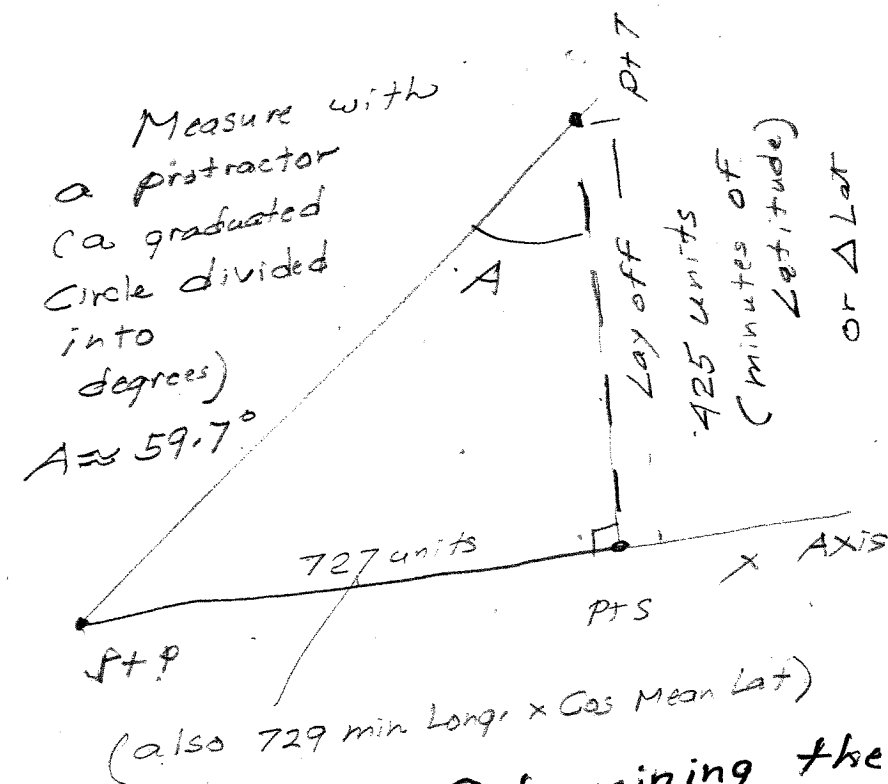 Measure with
a protractor
(a graduated
Circle divided
into
degrees)
A ≈ 59.7°
A
Pt T
Lay off
425 units
(minutes of
Latitude)
or Δ Lat
727 units
X Axis
Pt S
Pt P
(also 729 min Long. x Cos Mean Lat)
the